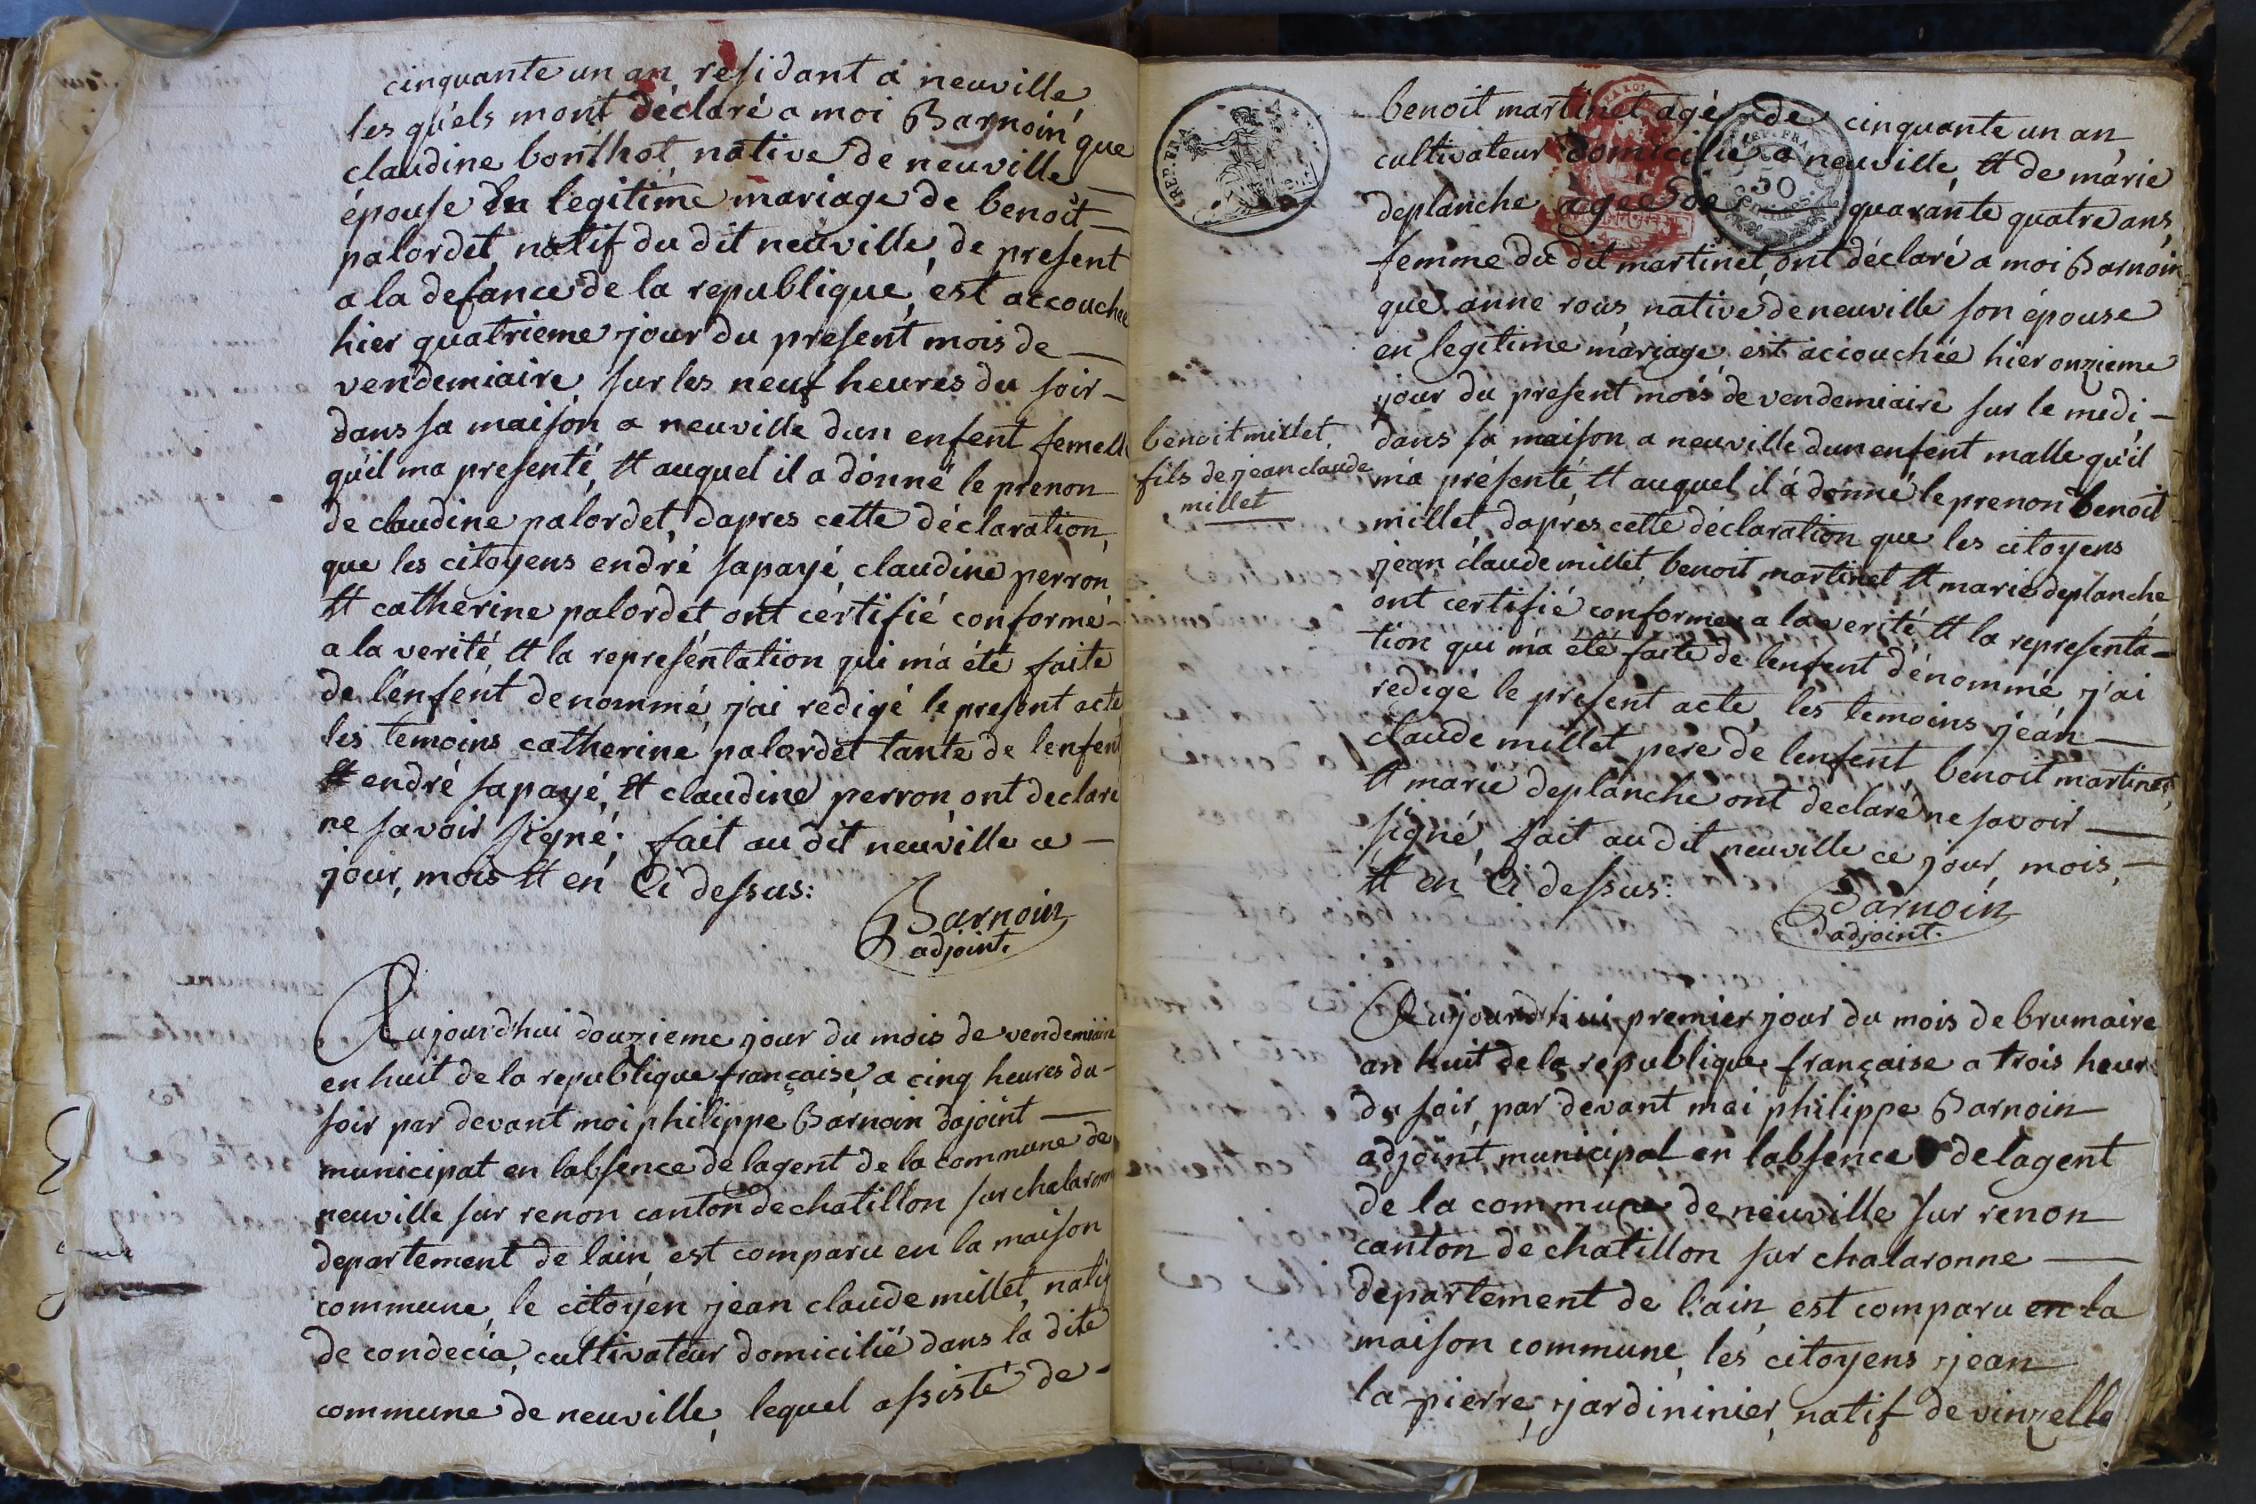 cinquante un an, residant a neuville
les quels mont déclaré a moi Barnoin que
claudine bonthot native de neuville
épouse En legitime mariage de benoit
palordet, natif du dit neuville, de present
a la defance de la republique, est accouchée
hier quatrieme jour du present mois de
vendemiaire sur les neuf heures du soir
dans sa maison a neuville dun enfent femelle
qu'il ma presenté, et auquel il a donné le prenon
de claudine palordet, dapres cette déclaration,
que les citoyens endré sapayé, claudine perron,
et catherine palordet ont certifié conforme
a la verité et la representation qui ma été faite
de l'enfent denommé j'ai redigé le present acte
les temoins catherine palordet tante de lenfent
et endré sapayé, et claudine perron ont declaré
ne savoir signé; fait au dit neuville ce
jour, mois et en Ci dessus:
Barnoin
adjoint.
Aujourdhui douzieme jour du mois de vendemiaire
en huit de la republique française a cinq heures du
soir par devant moi philippe Barnoin dajoint
municipat en labsence de lagent de la commune de
neuville sur renon canton de chatillon sur chalaronne
departement de lain est comparu en la maison
commune, le citoyen jean claude millet, natif
de condecia, cultivateur domicilié dans la dite
commune de neuville, lequel assisté de
REP. FRA
benoit martinet agé de cinquante un an,
cultivateur domicilié a neuville, et de marie
deplanche agée de quarante quatre ans
50
femme du dit martinet, ont déclaré a moi Barnoin
que anne rous, native de neuville son épouse
en legitime mariage est acioucheé hier onzieme
jour du present mois de vendemiaire sur le midi
benoit millet
fils de jean claude
millet
dans sa maison a neuville dun enfent malle qu'il
ma présenté, et auquel il á donné le prenon benoit
millet, daprès cette déclaration que les citoyens
jean claude millet, benoit martinet et marie deplanche
ont certifié conforme a la verité et la representa=
tion qui ma été faite de lenfent dénommé, j'ai
redigé le present acte, les temoins jean
claude millet pere de lenfent, benoit martinet,
et marie deplanche ont declaré ne savoir
signé, fait au dit neuville ce jour, mois,
et en Ci dessus:
Barnoin
adjoint.
Aujourdhui premier jour du mois de brumaire
an huit de la republique française a trois heur
du soir, par devant moi philippe Barnoin
adjoint municipal en labsence de lagent
de la commune de neuville sur renon
canton de chatillon sur chalaronne
departement de l'ain, est comparu en la
maison commune, les citoyens jean
la pierre, jardininier, natif de vinzelle